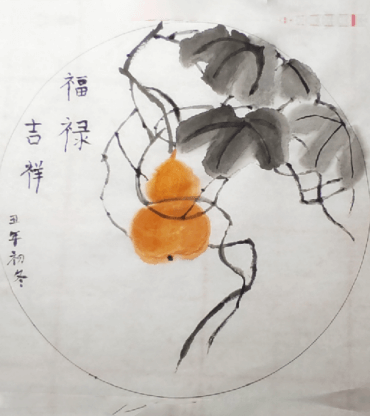 福禄
吉祥
丑年初冬